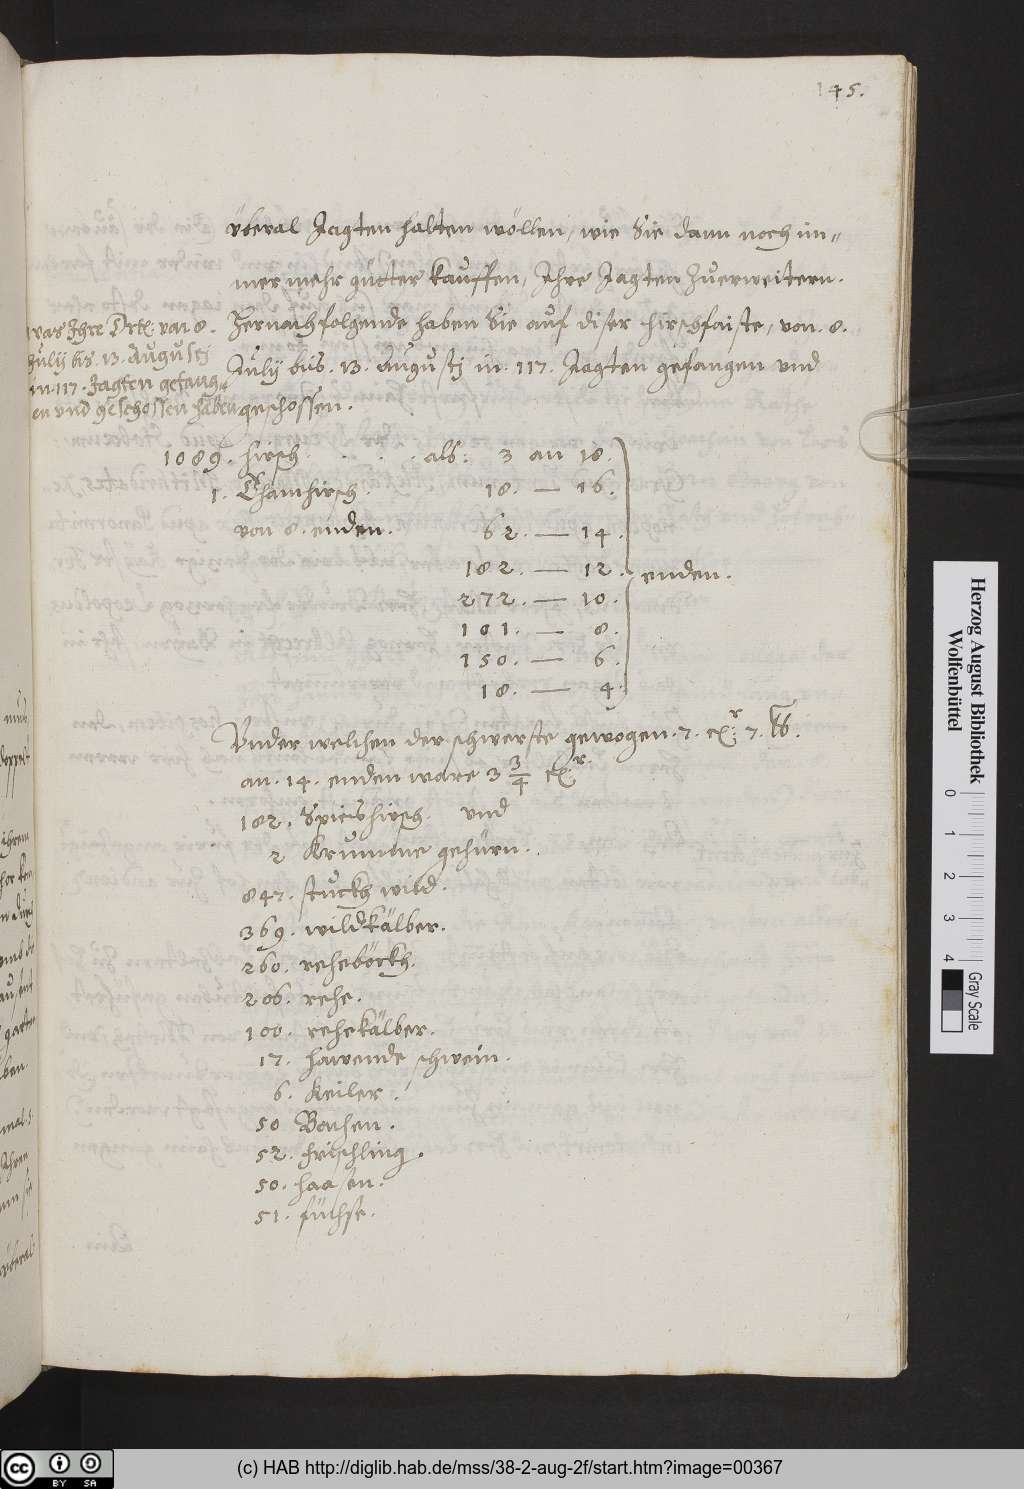 145.
vberal Jagten halten wöllen, wie Sie dann noch im=
mer mehr gütter kauffen, Ihre Jagten Zuerweitern.
Hernachfolgende haben Sie auf diser hirschfaiste, von. 8.
Julij bis. 13. Augustj in. 117. Jagten gefangen vnd
geschossen.
was Ihre Drtl: von 8.
Julij bis. 13. Augustj
in. 117. Jagten gefang
en vnd geschossen haben
1089. hirsch. . . . . als: 3 an 18.
1. Thamhirsch. 18. — 16.
von 8. enden. 62. — 14.
182. — 12. enden.
272. — 10.
101. — 8.
150. — 6.
18. — 4.
Vnder welchen der schwerste gewogen. 7. Cr: 7. lb.
an. 14. enden ware 3 3/4 Cr.
182. Spieshirsch. vnd
2 Krumme gehürn.
847. stuckh wild.
369. wildkälber.
260. reheböckh.
206. rehe.
100. rehekälber.
17. hawende schwein.
6. Keiler.
50 Bachen.
52. frischling.
50. haasen.
51. füchse.
Herzog August Bibliothek
Wolfenbüttel
0 1 2 3 4
Gray Scale
(c) HAB http://diglib.hab.de/mss/38-2-aug-2f/start.htm?image=00367
CC BY SA